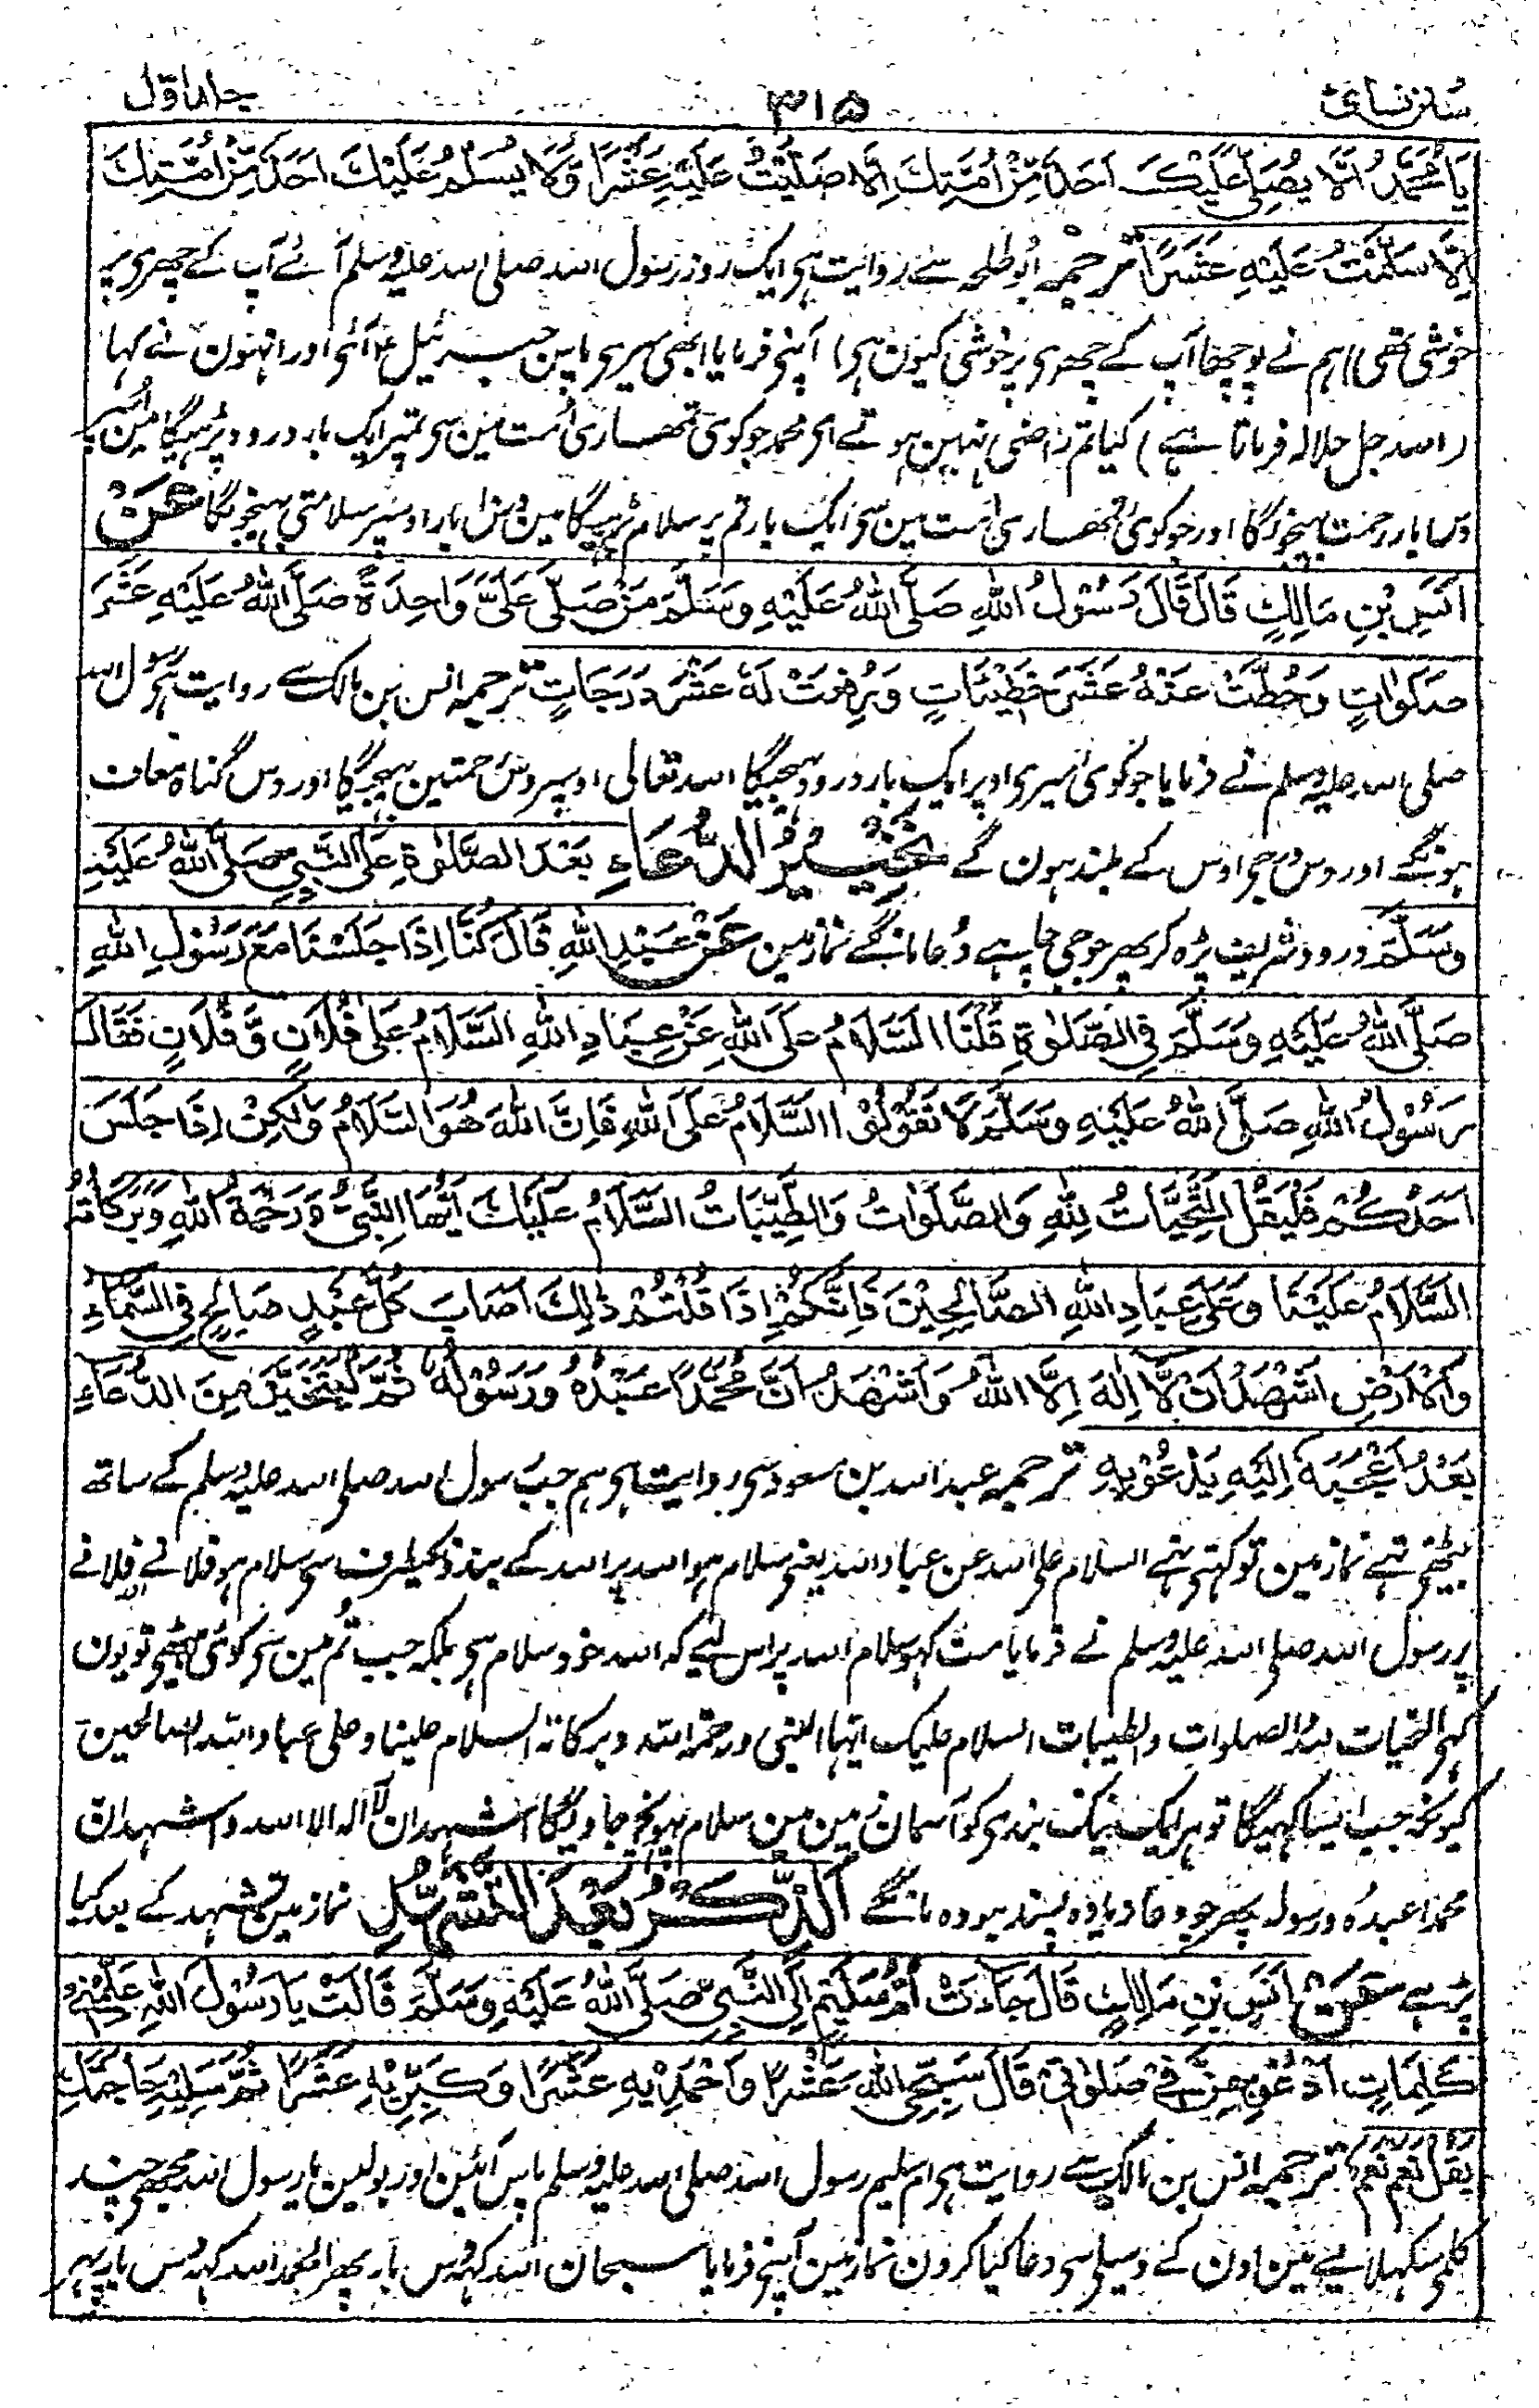 سنن نسائی ۳۱۵ جلد اوّل
يَا مُحَمَّدُ اَنَّهُ لَا يُصَلِّيْ عَلَيْكَ اَحَدٌ مِّنْ اُمَّتِكَ اِلَّا صَلَّيْتُ عَلَيْهِ عَشْرًا وَّلَا يُسَلِّمُ عَلَيْكَ اَحَدٌ مِّنْ اُمَّتِكَ
اِلَّا سَلَّمْتُ عَلَيْهِ عَشْرًا ترجمہ ابو طلحہ سے روایت ہی ایک روز رسول اللہ صلی اللہ علیہ وسلم آئے آپ کے چھری پر
خوشی تھی ہم نے پوچھا آپ کے چھری پر خوشی کیون ہی آپنی فرمایا ابھی میری پاس جبرئیل ۴ آئی اور انہون نے کہا
(اللہ جل جلالہ فرماتا ہے) کیا تم راضی نہین ہوتے ای محمد جو کوی تمھاری اُمت مین سی تمپر ایک بار درود پڑہیگا مین اُسپر
دس بار رحمت بھیجونگا اور جو کوی تمھاری اُمت مین سی ایک بار تم پر سلام پڑہیگا مین دس بار اوسپر سلامتی بھیجونگا عَنْ
اَنَسِ بْنِ مَالِكٍ قَالَ قَالَ رَسُوْلُ اللهِ صَلَّى اللهُ عَلَيْهِ وَسَلَّمَ مَنْ صَلّٰى عَلَيَّ وَاحِدَةً صَلَّى اللهُ عَلَيْهِ عَشْرَ
صَلَوَاتٍ وَحُطَّتْ عَنْهُ عَشْرُ خَطِيْئَاتٍ وَرُفِعَتْ لَهٗ عَشْرُ دَرَجَاتٍ ترجمہ انس بن مالک سے روایت ہی رسول اللہ
صلی اللہ علیہ وسلم نے فرمایا جو کوی میری اوپر ایک بار درود بھیجیگا اللہ تعالی اوسپر دس رحمتین بھیجیگا اور دس گناہ معاف
ہونگے اور دس درجی اوس کے بلند ہون گے تَخْيِيْرُ الدُّعَاءِ بَعْدَ الصَّلٰوةِ عَلَى النَّبِيِّ صَلَّى اللهُ عَلَيْهِ
وَسَلَّمَ درود شریف پڑہ کر پھر جو جی چاہے دُعا مانگے نماز مین عَنْ عَبْدِ اللهِ قَالَ كُنَّا اِذَا جَلَسْنَا مَعَ رَسُوْلِ اللهِ
صَلَّى اللهُ عَلَيْهِ وَسَلَّمَ فِي الصَّلٰوةِ قُلْنَا السَّلَامُ عَلَى اللهِ عَنْ عِبَادِ اللهِ السَّلَامُ عَلٰى فُلَانٍ وَّفُلَانٍ فَقَالَ
رَسُوْلُ اللهِ صَلَّى اللهُ عَلَيْهِ وَسَلَّمَ لَا تَقُوْلُوْا السَّلَامُ عَلَى اللهِ فَاِنَّ اللهَ هُوَ السَّلَامُ وَلٰكِنْ اِذَا جَلَسَ
اَحَدُكُمْ فَلْيَقُلْ التَّحِيَّاتُ لِلّٰهِ وَالصَّلَوَاتُ وَالطَّيِّبَاتُ السَّلَامُ عَلَيْكَ اَيُّهَا النَّبِيُّ وَرَحْمَةُ اللهِ وَبَرَكَاتُهُ
السَّلَامُ عَلَيْنَا وَعَلٰى عِبَادِ اللهِ الصَّالِحِيْنَ فَاِنَّكُمْ اِذَا قُلْتُمْ ذٰلِكَ اَصَابَ كُلَّ عَبْدٍ صَالِحٍ فِي السَّمَاءِ
وَالْاَرْضِ اَشْهَدُ اَنْ لَّا اِلٰهَ اِلَّا اللهُ وَاَشْهَدُ اَنَّ مُحَمَّدًا عَبْدُهُ وَرَسُوْلُهُ ثُمَّ لْيَتَخَيَّرْ مِنَ الدُّعَاءِ
بَعْدُ اَعْجَبَهٗ اِلَيْهِ يَدْعُوْ بِهٖ ترجمہ عبد اللہ بن مسعود سی روایت ہی ہم جب رسول اللہ صلی اللہ علیہ وسلم کے ساتھ
بیٹھتی تہے نماز مین تو کہتی تہے السلام علی اللہ عن عباد اللہ یعنی سلام ہو اللہ پر اللہ کے بندونکیطرف سی سلام ہو فلانے فلانے
پر رسول اللہ صلی اللہ علیہ وسلم نے فرمایا مت کہو سلام اللہ پر اس لیے کہ اللہ خود سلام ہی بلکہ جب تم مین سی کوئی بیٹھی تو یون
کہی التحیات للہ والصلوات والطیبات السلام علیک ایہا النبی ورحمۃ اللہ وبرکاتہ السلام علینا وعلی عباد اللہ الصالحین
کیونکہ جب ایسا کہیگا تو ہر ایک نیک بندی کو آسمان زمین مین سلام پہونچ جاویگا اشہد ان لا الہ الا اللہ واشہد ان
محمدا عبدہ ورسولہ پھر جو دعا زیادہ پسند ہو وہ مانگے اَلذِّكْرُ بَعْدَ التَّشَهُّدِ نماز مین تشہد کے بعد کیا
پڑہے عَنْ اَنَسِ بْنِ مَالِكٍ قَالَ جَاءَتْ اُمُّ سُلَيْمٍ اِلَى النَّبِيِّ صَلَّى اللهُ عَلَيْهِ وَسَلَّمَ قَالَتْ يَا رَسُوْلَ اللهِ عَلِّمْنِيْ
كَلِمَاتٍ اَدْعُوْ بِهِنَّ فِيْ صَلٰوتِيْ قَالَ سَبِّحِي اللهَ عَشْرًا وَاحْمَدِيْهِ عَشْرًا وَكَبِّرِيْهِ عَشْرًا ثُمَّ سَلِيْهِ حَاجَتَكِ
يَقُلْ نَعَمْ نَعَمْ ترجمہ انس بن مالک سے روایت ہی ام سلیم رسول اللہ صلی اللہ علیہ وسلم پاس آئین اور بولین یا رسول اللہ مجھی چند
کلمی سکہلائیے مین اون کے وسیلی سی دعا کیا کرون نماز مین آپنی فرمایا سبحان اللہ کہہ دس بار پھر الحمد للہ کہہ دس بار پہر